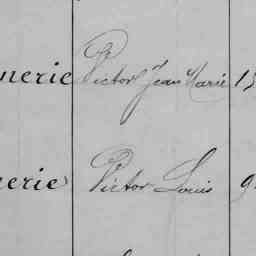 nerie Victor Jean Marie 15
nerie Victor Louis 9